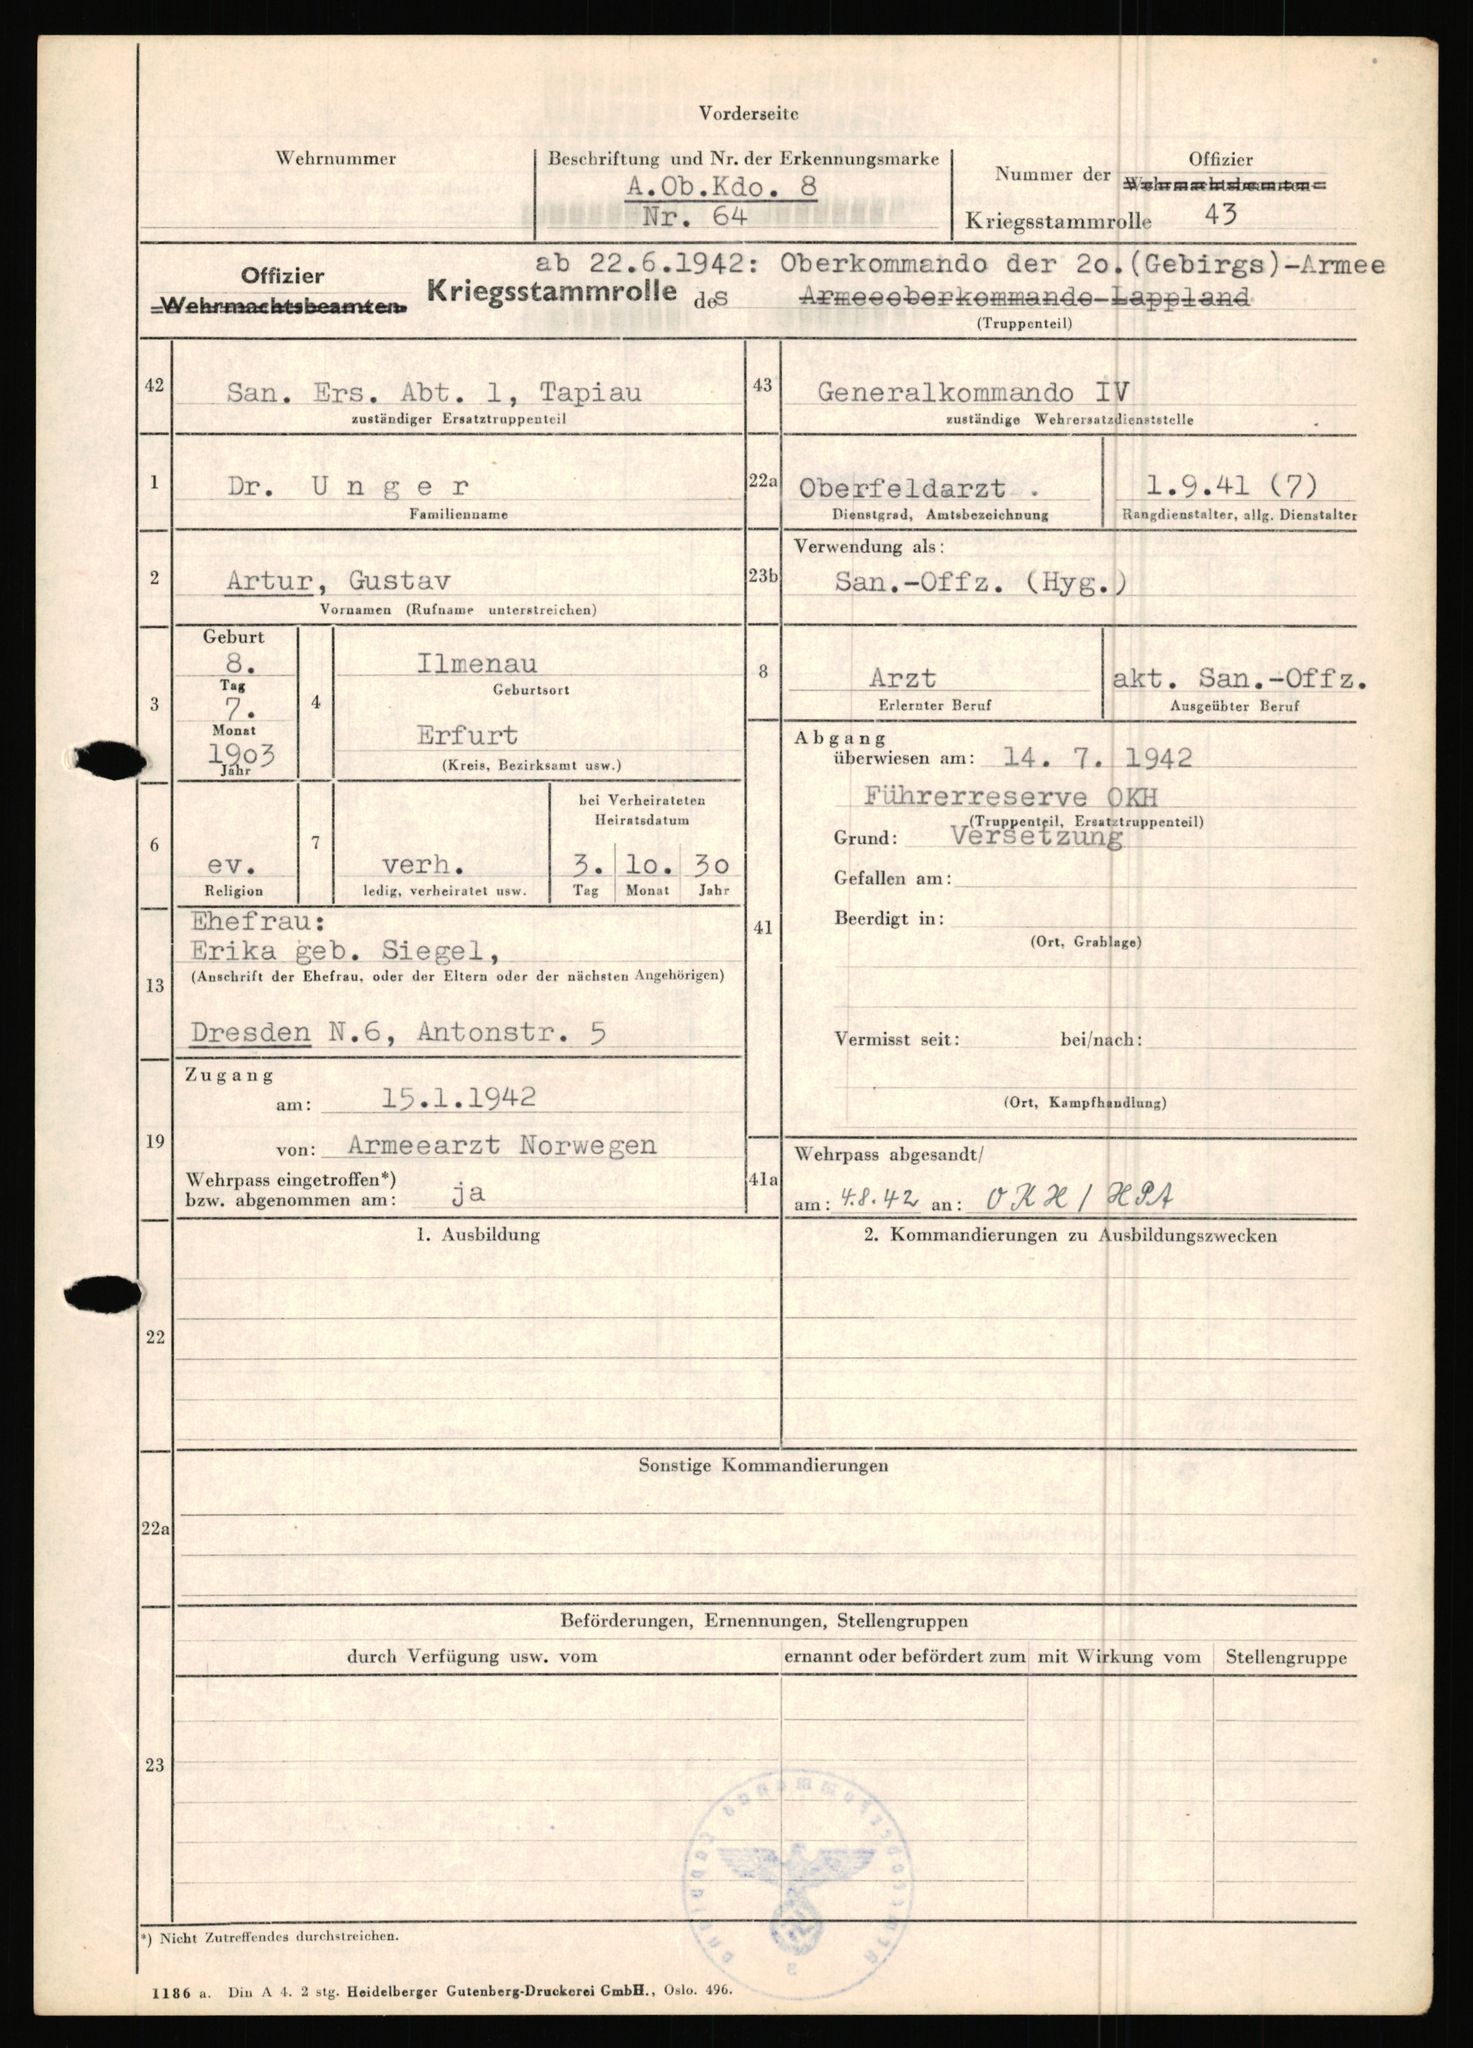 Vorderseite
Wehrnummer
Beschriftung und Nr. der Erkennungsmarke
A.Ob.Kdo. 8
Nr. 64
Offizier
Nummer der Wehrmachtsbeamten-
Kriegsstammrolle 43
ab 22.6.1942: Oberkommando der 2o.(Gebirgs)-Armee
Offizier
Wehrmachtsbeamten- Kriegsstammrolle des Armeeoberkommando-Lappland
(Truppenteil)
42 San. Ers. Abt. 1, Tapiau
zuständiger Ersatztruppenteil
43 Generalkommando IV
zuständige Wehrersatzdienststelle
1 Dr. U n g e r
Familienname
22a Oberfeldarzt . 1.9.41 (7)
Dienstgrad, Amtsbezeichnung Rangdienstalter, allg. Dienstalter
2 Artur, Gustav
Vornamen (Rufname unterstreichen)
Verwendung als:
23b San.-Offz. (Hyg.)
Geburt
3
8.
Tag
7.
Monat
19o3
Jahr
4 Ilmenau
Geburtsort
Erfurt
(Kreis, Bezirksamt usw.)
8 Arzt akt. San.-Offz.
Erlernter Beruf Ausgeübter Beruf
6 ev.
Religion
7 verh.
ledig, verheiratet usw.
bei Verheirateten
Heiratsdatum
3. 1o. 3o
Tag Monat Jahr
41 Abgang
überwiesen am: 14. 7. 1942
Führerreserve OKH
(Truppenteil, Ersatztruppenteil)
Grund: Versetzung
Gefallen am:
Beerdigt in:
(Ort, Grablage)
Vermisst seit: bei/nach:
(Ort, Kampfhandlung)
13 Ehefrau:
Erika geb. Siegel,
(Anschrift der Ehefrau, oder der Eltern oder der nächsten Angehörigen)
Dresden N.6, Antonstr. 5
19 Zugang
am: 15.1.1942
von: Armeearzt Norwegen
Wehrpass eingetroffen*)
bzw. abgenommen am: ja
41a Wehrpass abgesandt/
am: 4.8.42 an: OKH / HPA
22 1. Ausbildung
2. Kommandierungen zu Ausbildungszwecken
22a Sonstige Kommandierungen
23 Beförderungen, Ernennungen, Stellengruppen
durch Verfügung usw. vom ernannt oder befördert zum mit Wirkung vom Stellengruppe
*) Nicht Zutreffendes durchstreichen.
1186 a. Din A 4. 2 stg. Heidelberger Gutenberg-Druckerei GmbH., Oslo. 496.